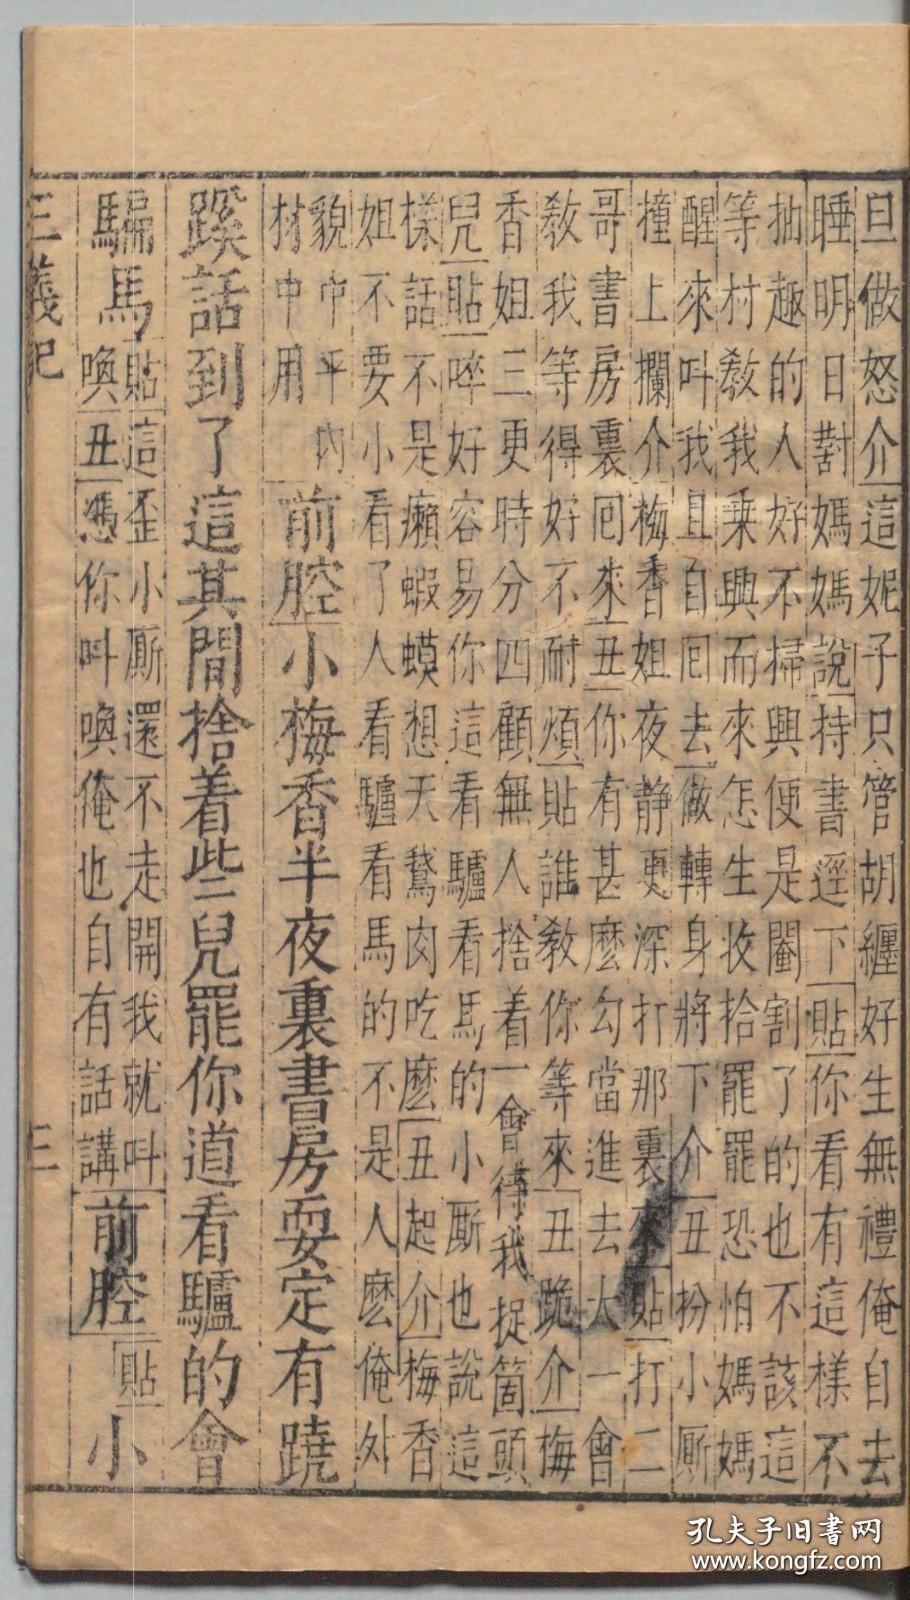 旦做怒介這妮子只管胡纏好生無禮俺自去
睡明日對媽媽說持書逕下貼你看有這樣不
抽趣的人好不掃興便是閹割了的也不該這
等村敎我乗興而來怎生收拾罷罷恐怕媽媽
醒來呌我且自囘去做轉身將下介丑扮小厮
撞上攔介梅香姐夜静更深打那裏來貼打二
哥書房裏囘來丑你有甚麽勾當進去大一會
敎我等得好不耐煩貼誰敎你等來丑跪介梅
香姐三更時分四顧無人捨着一會待我捉箇頭
兒貼啐好容易你這看驢看馬的小厮也說這
樣話不是癩蝦蟆想天鵞肉吃麽丑起介梅香
姐不要小看了人看驢看馬的不是人麽俺外
貌中平內
材中用
前腔小梅香半夜裏書房耍定有蹺
蹊話到了這其間捨着些兒罷你道看驢的會
騸馬
貼這歪小厮還不走開我就呌
喚丑憑你呌喚俺也自有話講
前腔貼小
三義記
三
孔夫子旧书网
www.kongfz.com